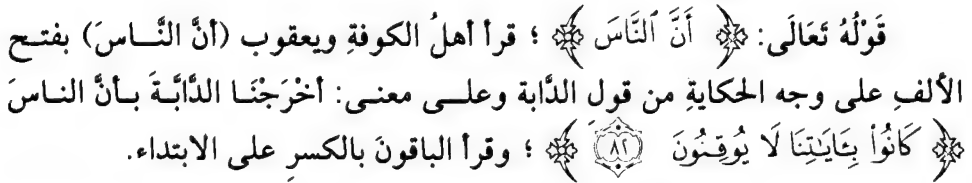 قَوْلُهُ تَعَالَى: ﴿ أَنَّ ٱلنَّاسَ ﴾ ؛ قرأ أهلُ الكوفةِ ويعقوب (أنَّ النَّـاسَ) بفتـح
الألفِ على وجه الحكايةِ من قولِ الدَّابة وعلـى معنـى: أخْرَجْنَـا الدَّابَّـةَ بـأنَّ الناسَ
﴿ كَانُوا۟ بِـَٔايَـٰتِنَا لَا يُوقِنُونَ ٨٢ ﴾ ؛ وقرأ الباقونَ بالكسرِ على الابتداء.